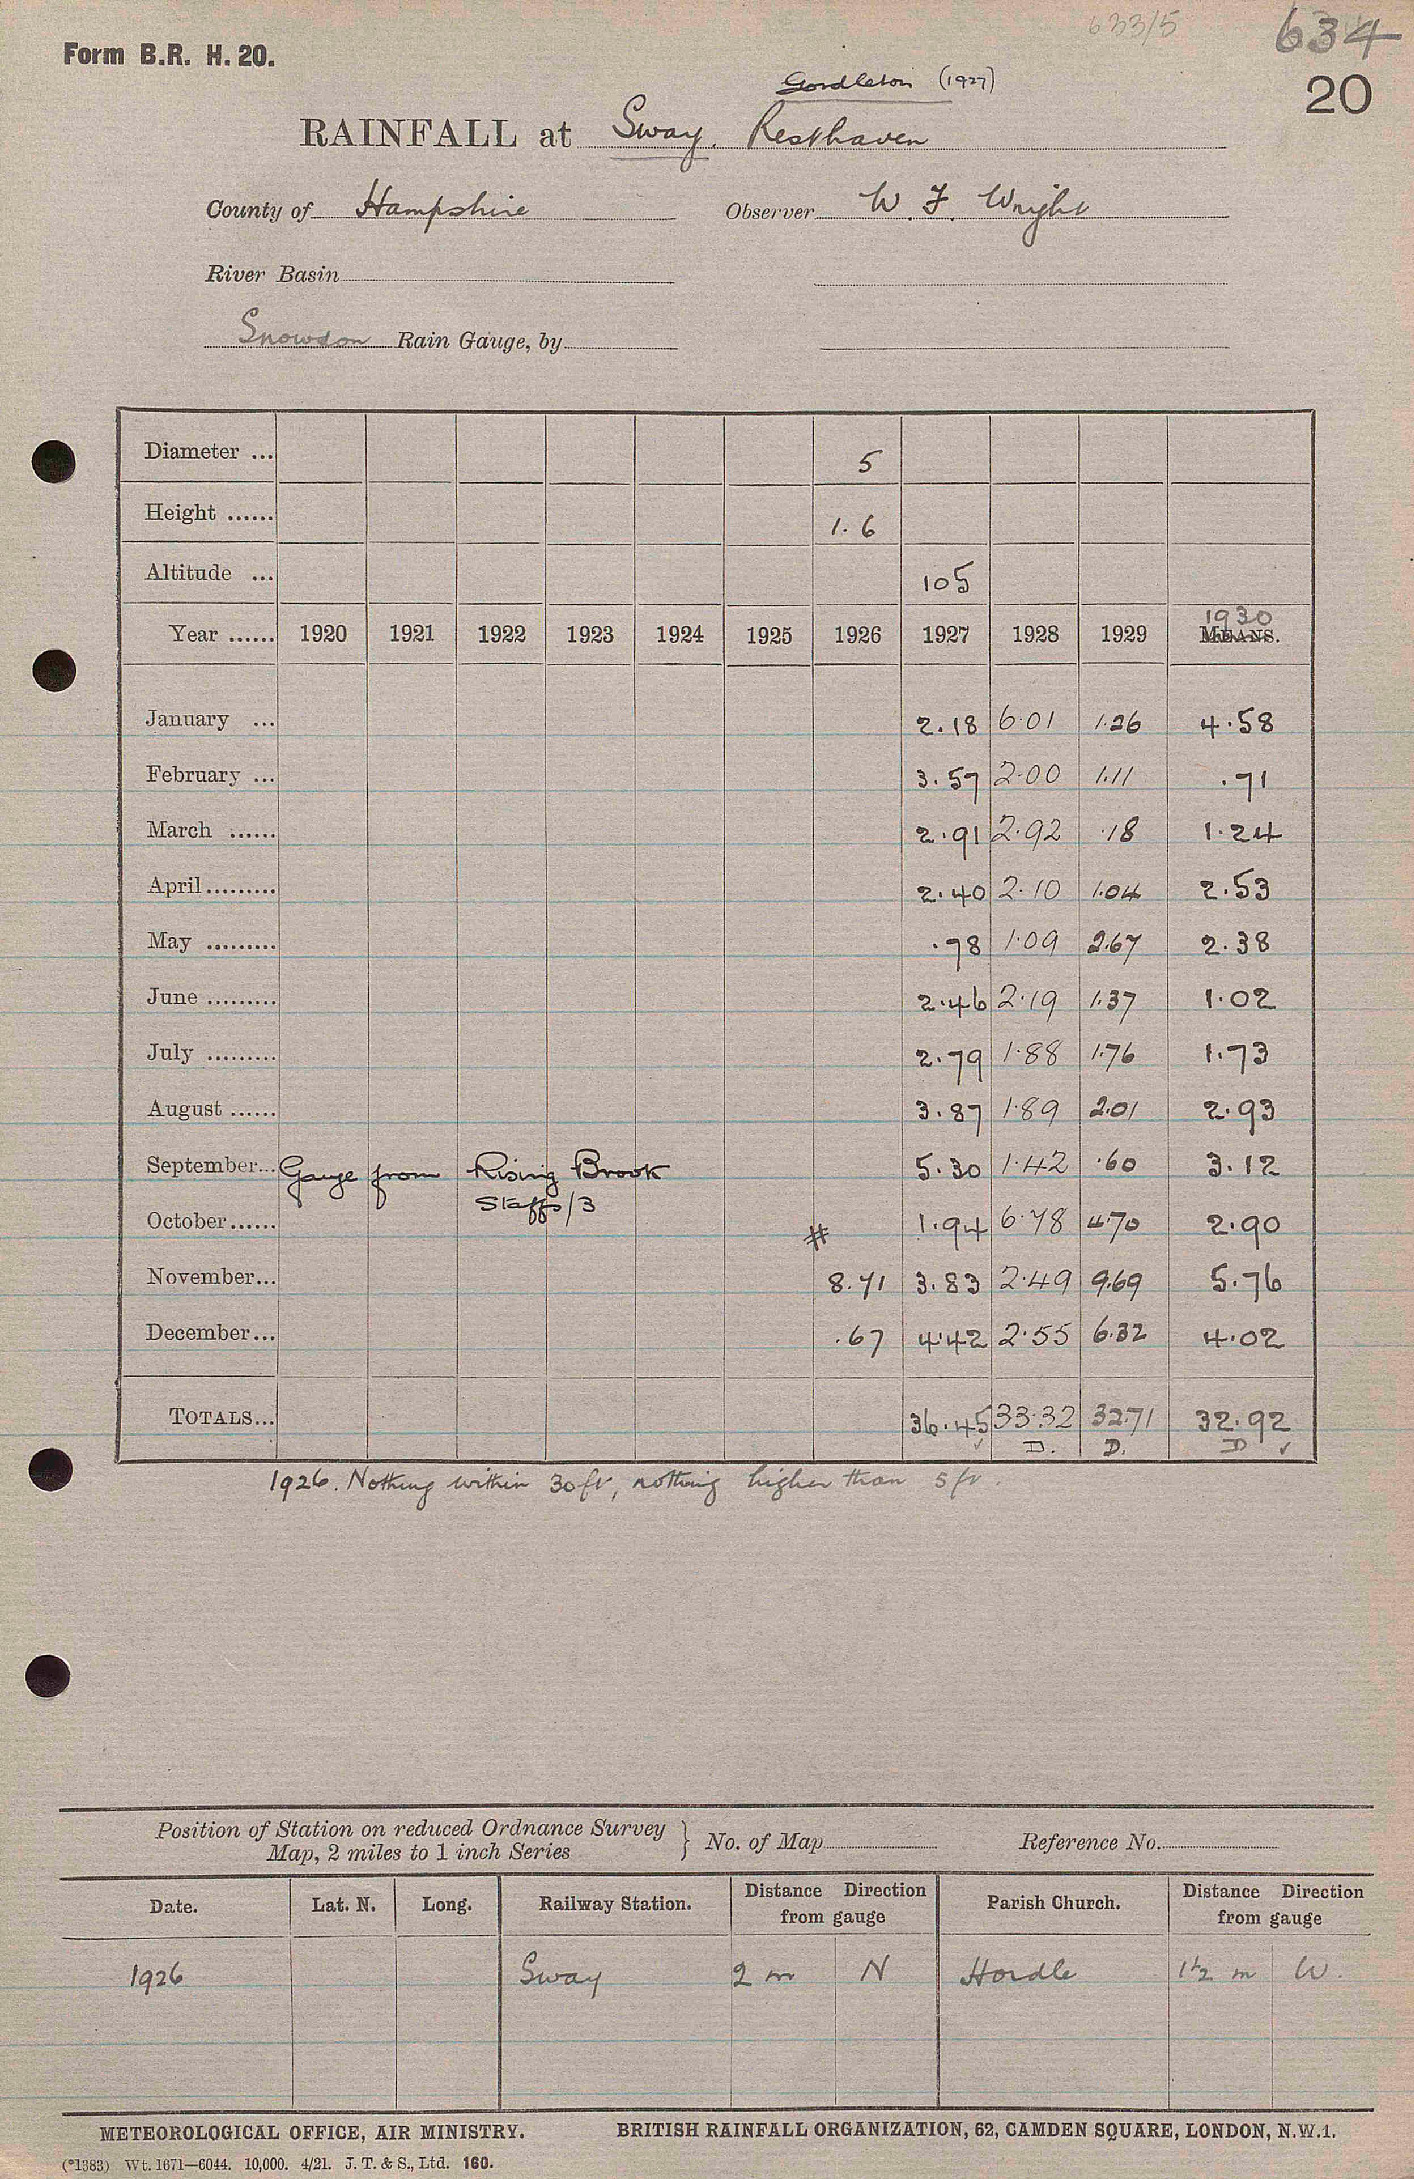 633/5
634
Form B.R. H. 20.
20
Gordleton (1927)
RAINFALL at Sway. Resthaven
County of Hampshire Observer W. F. Wright
River Basin
Snowdon Rain Gauge, by
Diameter ... 5
Height ...... 1.6
Altitude ... 105
1930
Year ...... 1920 1921 1922 1923 1924 1925 1926 1927 1928 1929 MEANS.
January ... 2.18 6.01 1.26 4.58
February ... 3.57 2.00 1.11 .71
March ...... 2.91 2.92 .18 1.24
April ......... 2.40 2.10 1.04 2.53
May ......... .78 1.09 2.67 2.38
June ......... 2.46 2.19 1.37 1.02
July ......... 2.79 1.88 1.76 1.73
August ...... 3.87 1.89 2.01 2.93
September... Gauge from Rising Brook 5.30 1.42 .60 3.12
Staffs/3
October...... # 1.94 6.78 4.70 2.90
November... 8.71 3.83 2.49 9.69 5.76
December... .67 4.42 2.55 6.32 4.02
TOTALS... 36.45 33.32 32.71 32.92
✓ D. D. D ✓
1926. Nothing within 30 ft, nothing higher than 5 ft.
Position of Station on reduced Ordnance Survey
Map, 2 miles to 1 inch Series } No. of Map Reference No.
Date. Lat. N. Long. Railway Station. Distance Direction from gauge Parish Church. Distance Direction from gauge
1926 Sway 2 m N Hordle 1½ m W.
METEOROLOGICAL OFFICE, AIR MINISTRY. BRITISH RAINFALL ORGANIZATION, 62, CAMDEN SQUARE, LONDON, N.W.1.
(*1383) Wt. 1671—6044. 10,000. 4/21. J. T. & S., Ltd. 160.